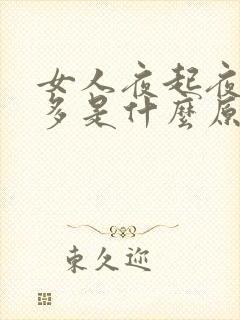 女人夜起夜
多是什麼原
東久迩